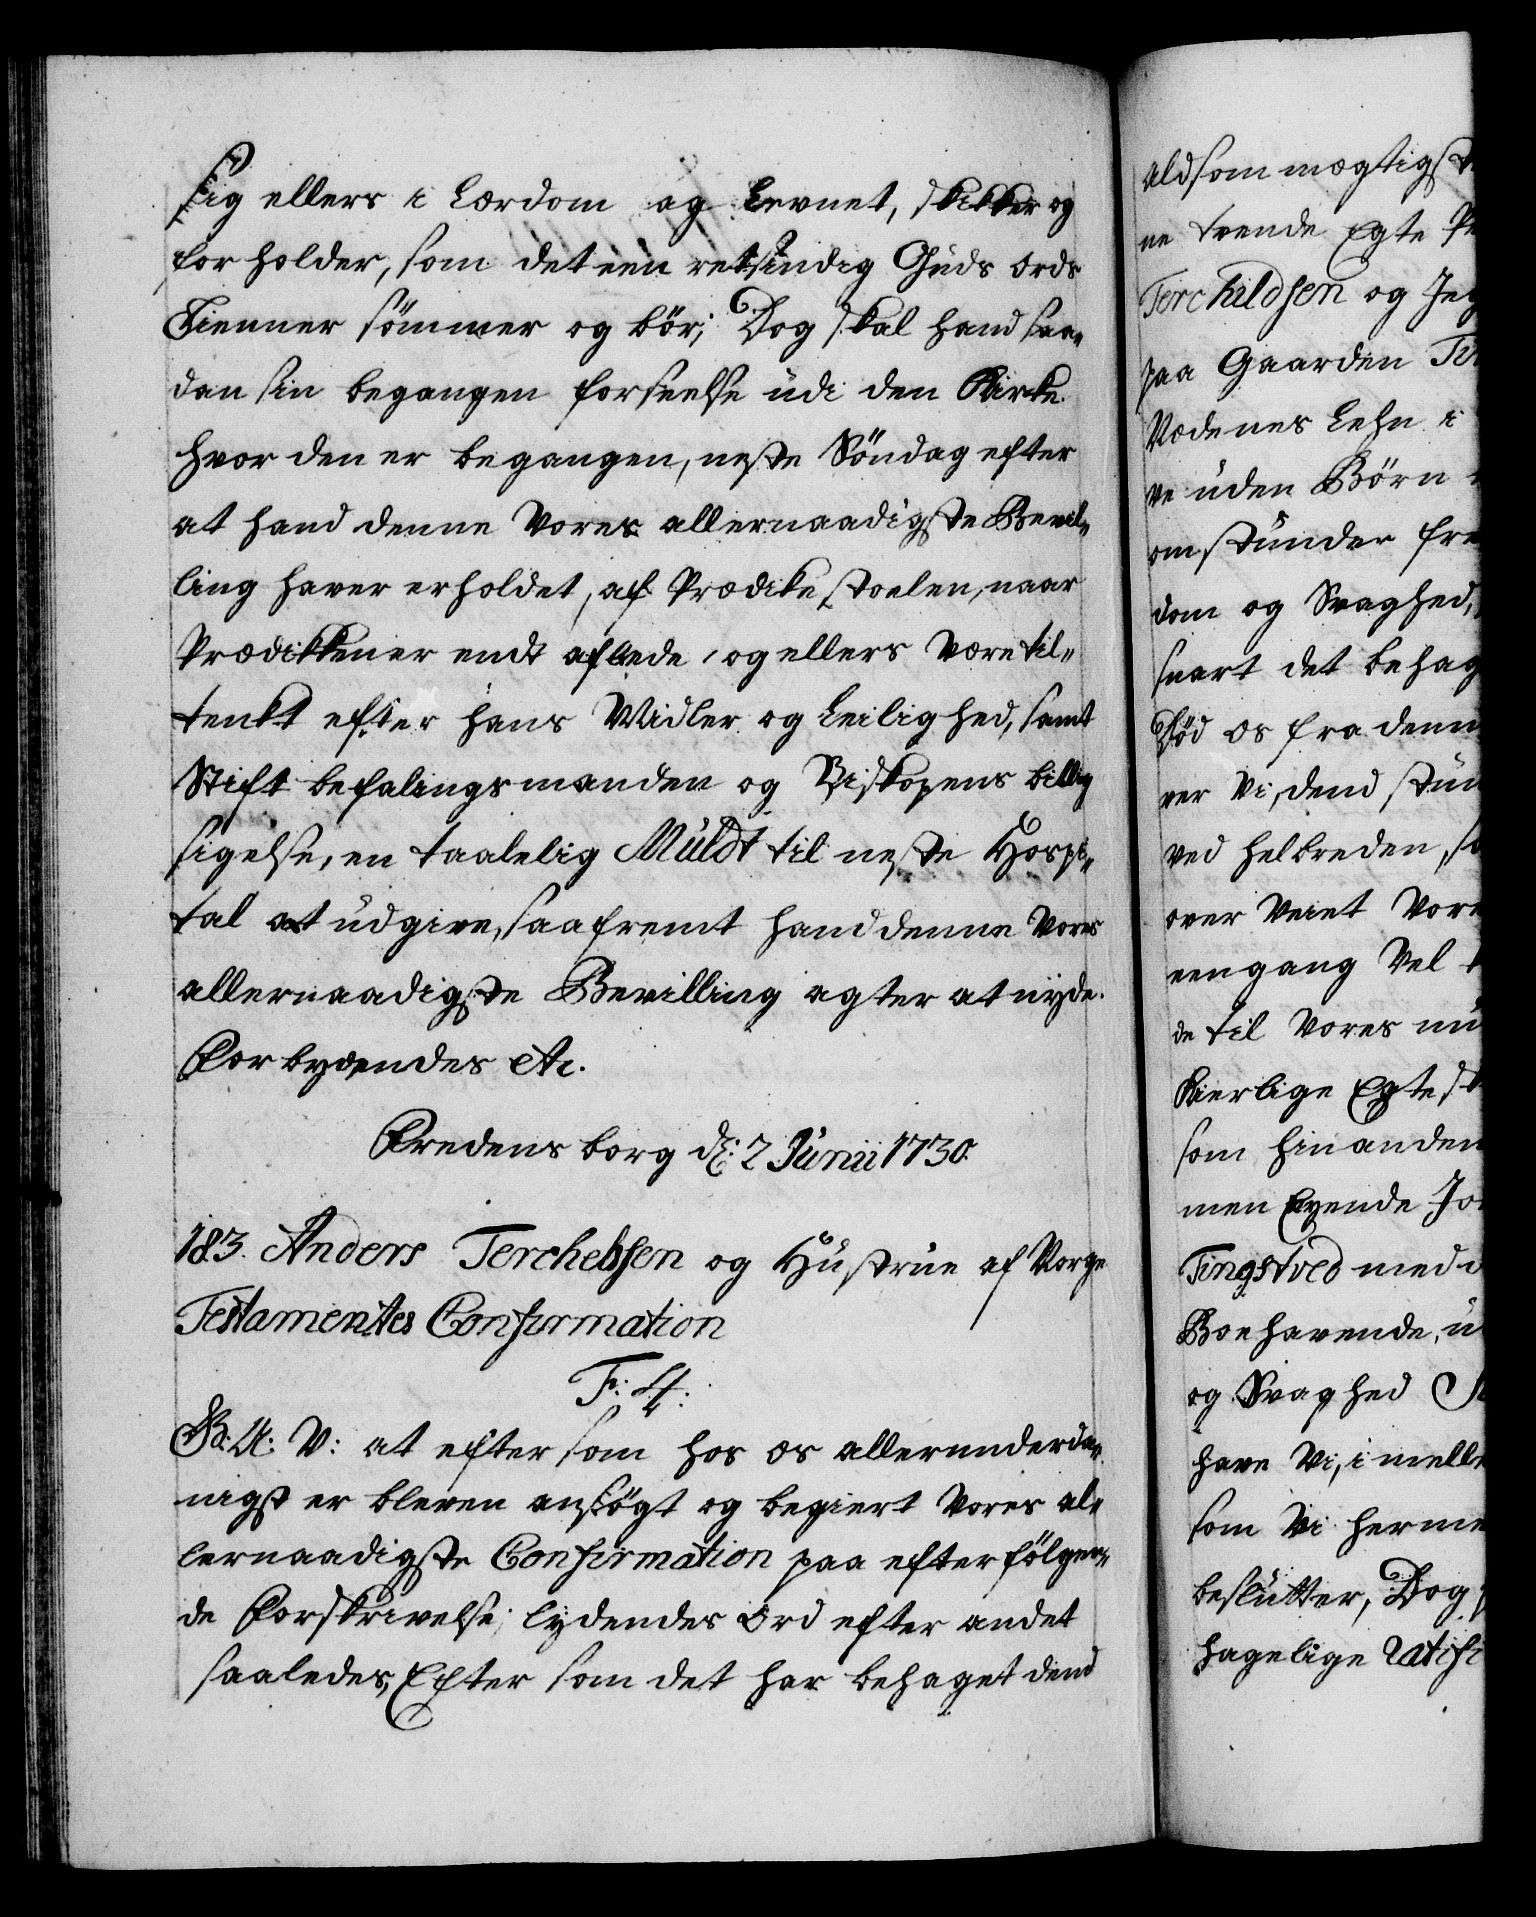 sig ellers i Lærdom og Levnet, skikker og
forholder, som det een retsindig Guds Ords
Tienner sömmer og bör; Dog skal hand saa„
dan sin begangen forseelse udi den Kirke
hvor den er begangen, neste Söndag efter
at hand denne Vores allernaadigste Bevil„
ling haver erholdet, af Prædikestoelen, naar
Prædikken er endt aflede, og ellers være til„
tenkt efter hans Midler og Leilighed, samt
Stiftbefalingsmanden og Biskopens billig
sigelse, en taalelig Muldt til neste Hospi„
tal at udgive, saafremt hand denne Vores
allernaadigste Bevilling agter at nyde.
Forbydendes etc.
Fredensborg d: 2 Junii 1730.
183. Anders Terchelsen og Hustrue af Norge
Testamentes Confirmation
F: 4.
G. A: V: at eftersom hos os allerunderda„
nigst er bleven ansögt og begiert Vores al„
lernaadigste Confirmation paa efterfölgen„
de Forskrivelse, lydendes Ord efter andet
saaledes, Efter som det har behaget dend
aldsom mægtigst
ne tvende Egte
Terchildsen og
paa Gaarden
Lehn i
ve uden Börn
omstunder
dom og Svaghed,
snart det behag
Död os fra denn
ver Vi, dend stun
ved helbreden,
over veiet Vor
eengang Vel
de til Vores
Kierlige Egtesk
som hinanden
men Eyende
Tingsted med
Boehavende, u
og Svaghed
have Vi, i mell
som Vi herme
beslutter, Dog
hagelige ratifi